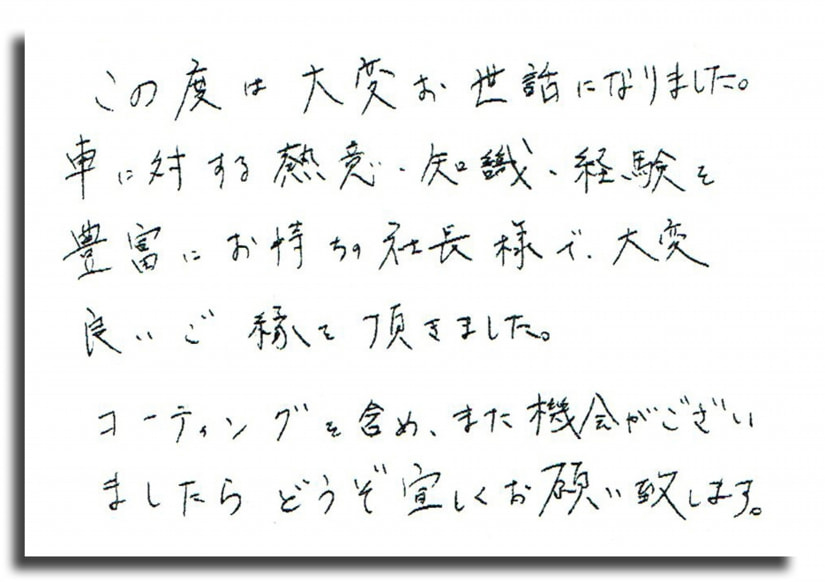 この度は大変お世話になりました。
車に対する熱意・知識・経験を
豊富にお持ちの社長様で、大変
良いご縁を頂きました。
コーティングを含め、また機会がござい
ましたらどうぞ宜しくお願い致します。